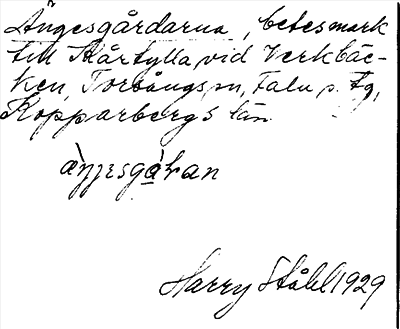 Ängesgårdarna, betesmark
till Skårtylla, vid Verkbäc-
ken, Torsångs sn, Falu p. fg,
Kopparbergs län
Harry Ståhl 1929